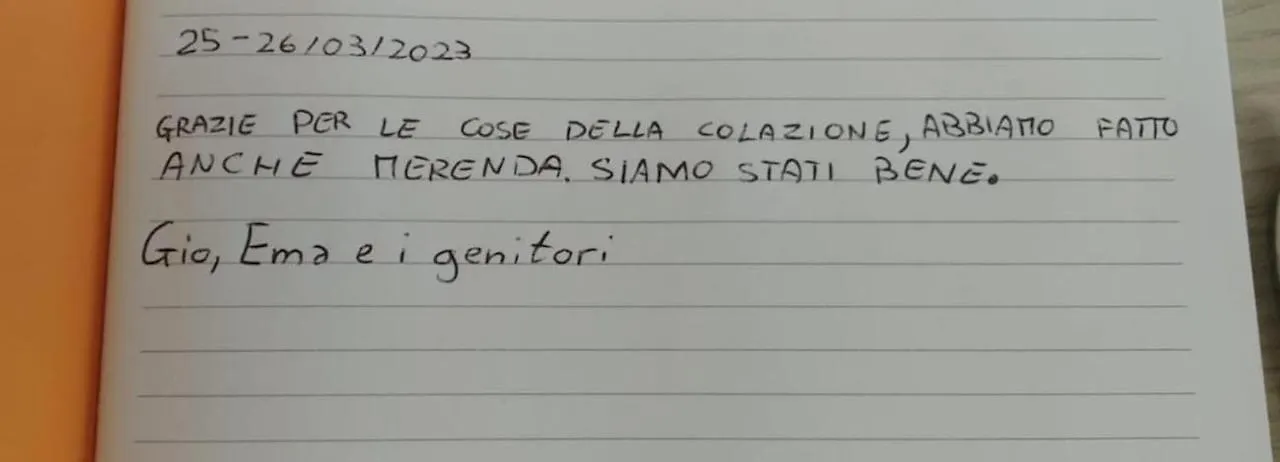 25-26/03/2023
GRAZIE PER LE COSE DELLA COLAZIONE, ABBIAMO FATTO
ANCHE MERENDA. SIAMO STATI BENE.
Gio, Ema e i genitori